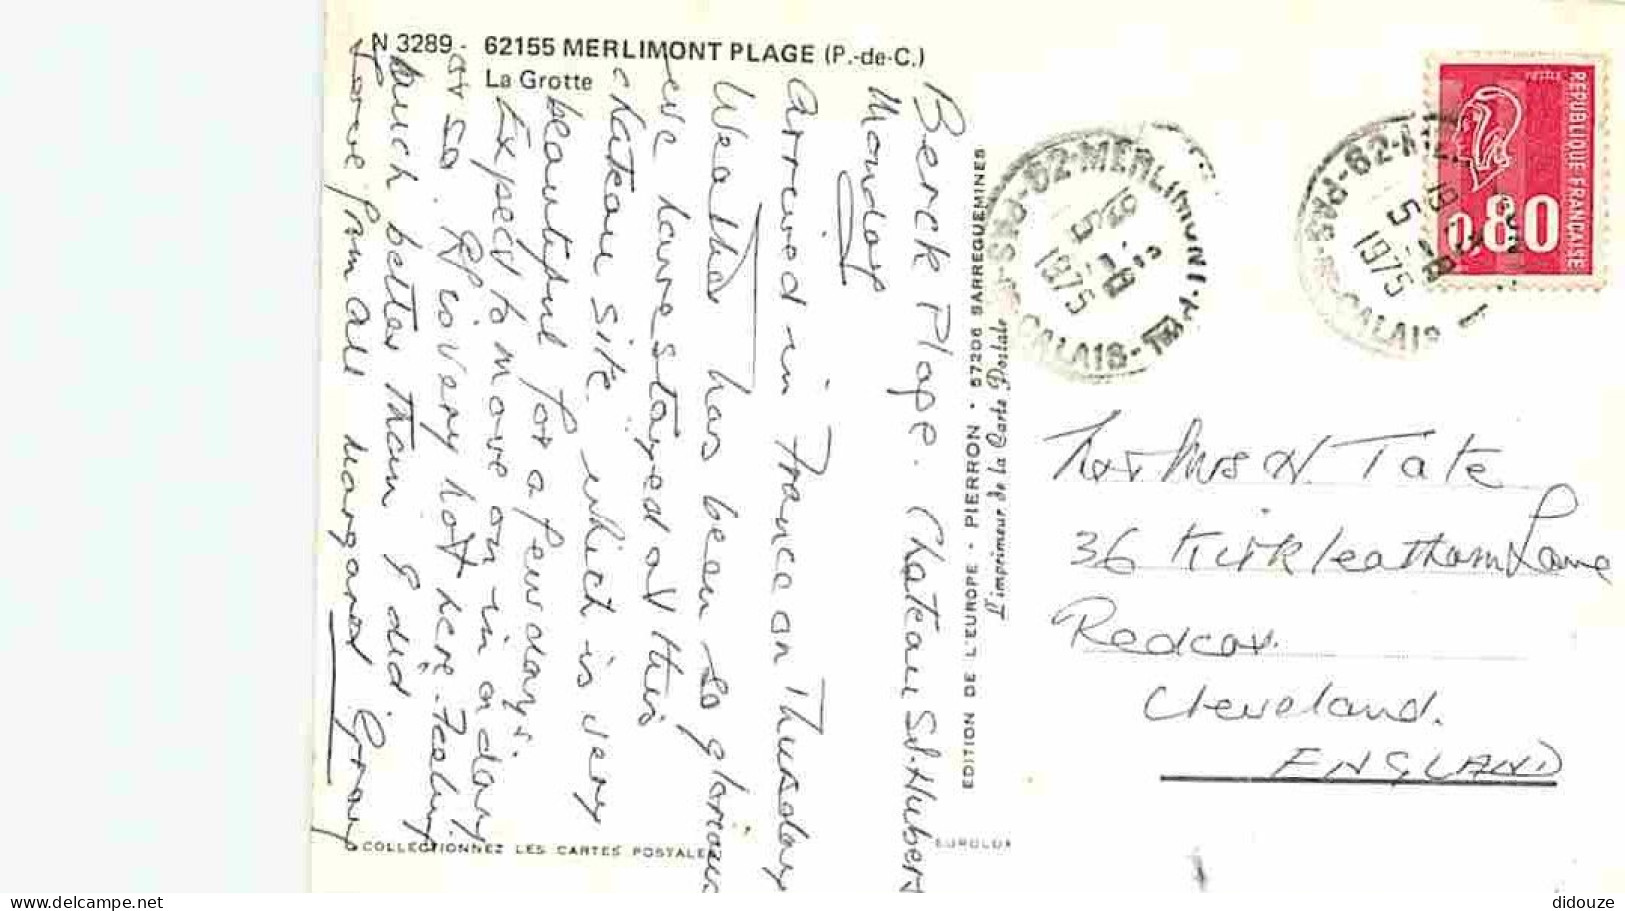 N 3289 - 62155 MERLIMONT PLAGE (P.-de-C.)
La Grotte
Berck Plage. Chateau St. Hubert
Monday
Arrived in France on Thursday
Weather has been so glorious
we have stayed at this
chateau site which is very
beautiful for a few days.
Expect to move on in a day
or so. It is very hot here. Feeling
much better than I did
Love from all Margaret Gray
COLLECTIONNEZ LES CARTES POSTALES
EDITION DE L'EUROPE • PIERRON • 57206 SARREGUEMINES
L'imprimeur de la Carte Postale
EUROLUX
62-MERLIMONT
PAS-DE-CALAIS
1975
62-MERLIMONT
PAS-DE-CALAIS
1975
REPUBLIQUE FRANCAISE
0,80
Mr & Mrs N. Tate
36 Kirkleatham Lane
Redcar.
Cleveland.
ENGLAND
didouze